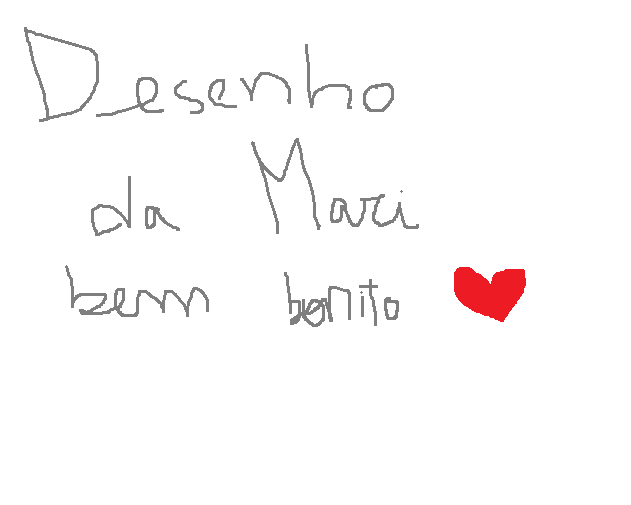 Desenho
da Mari
bem bonito